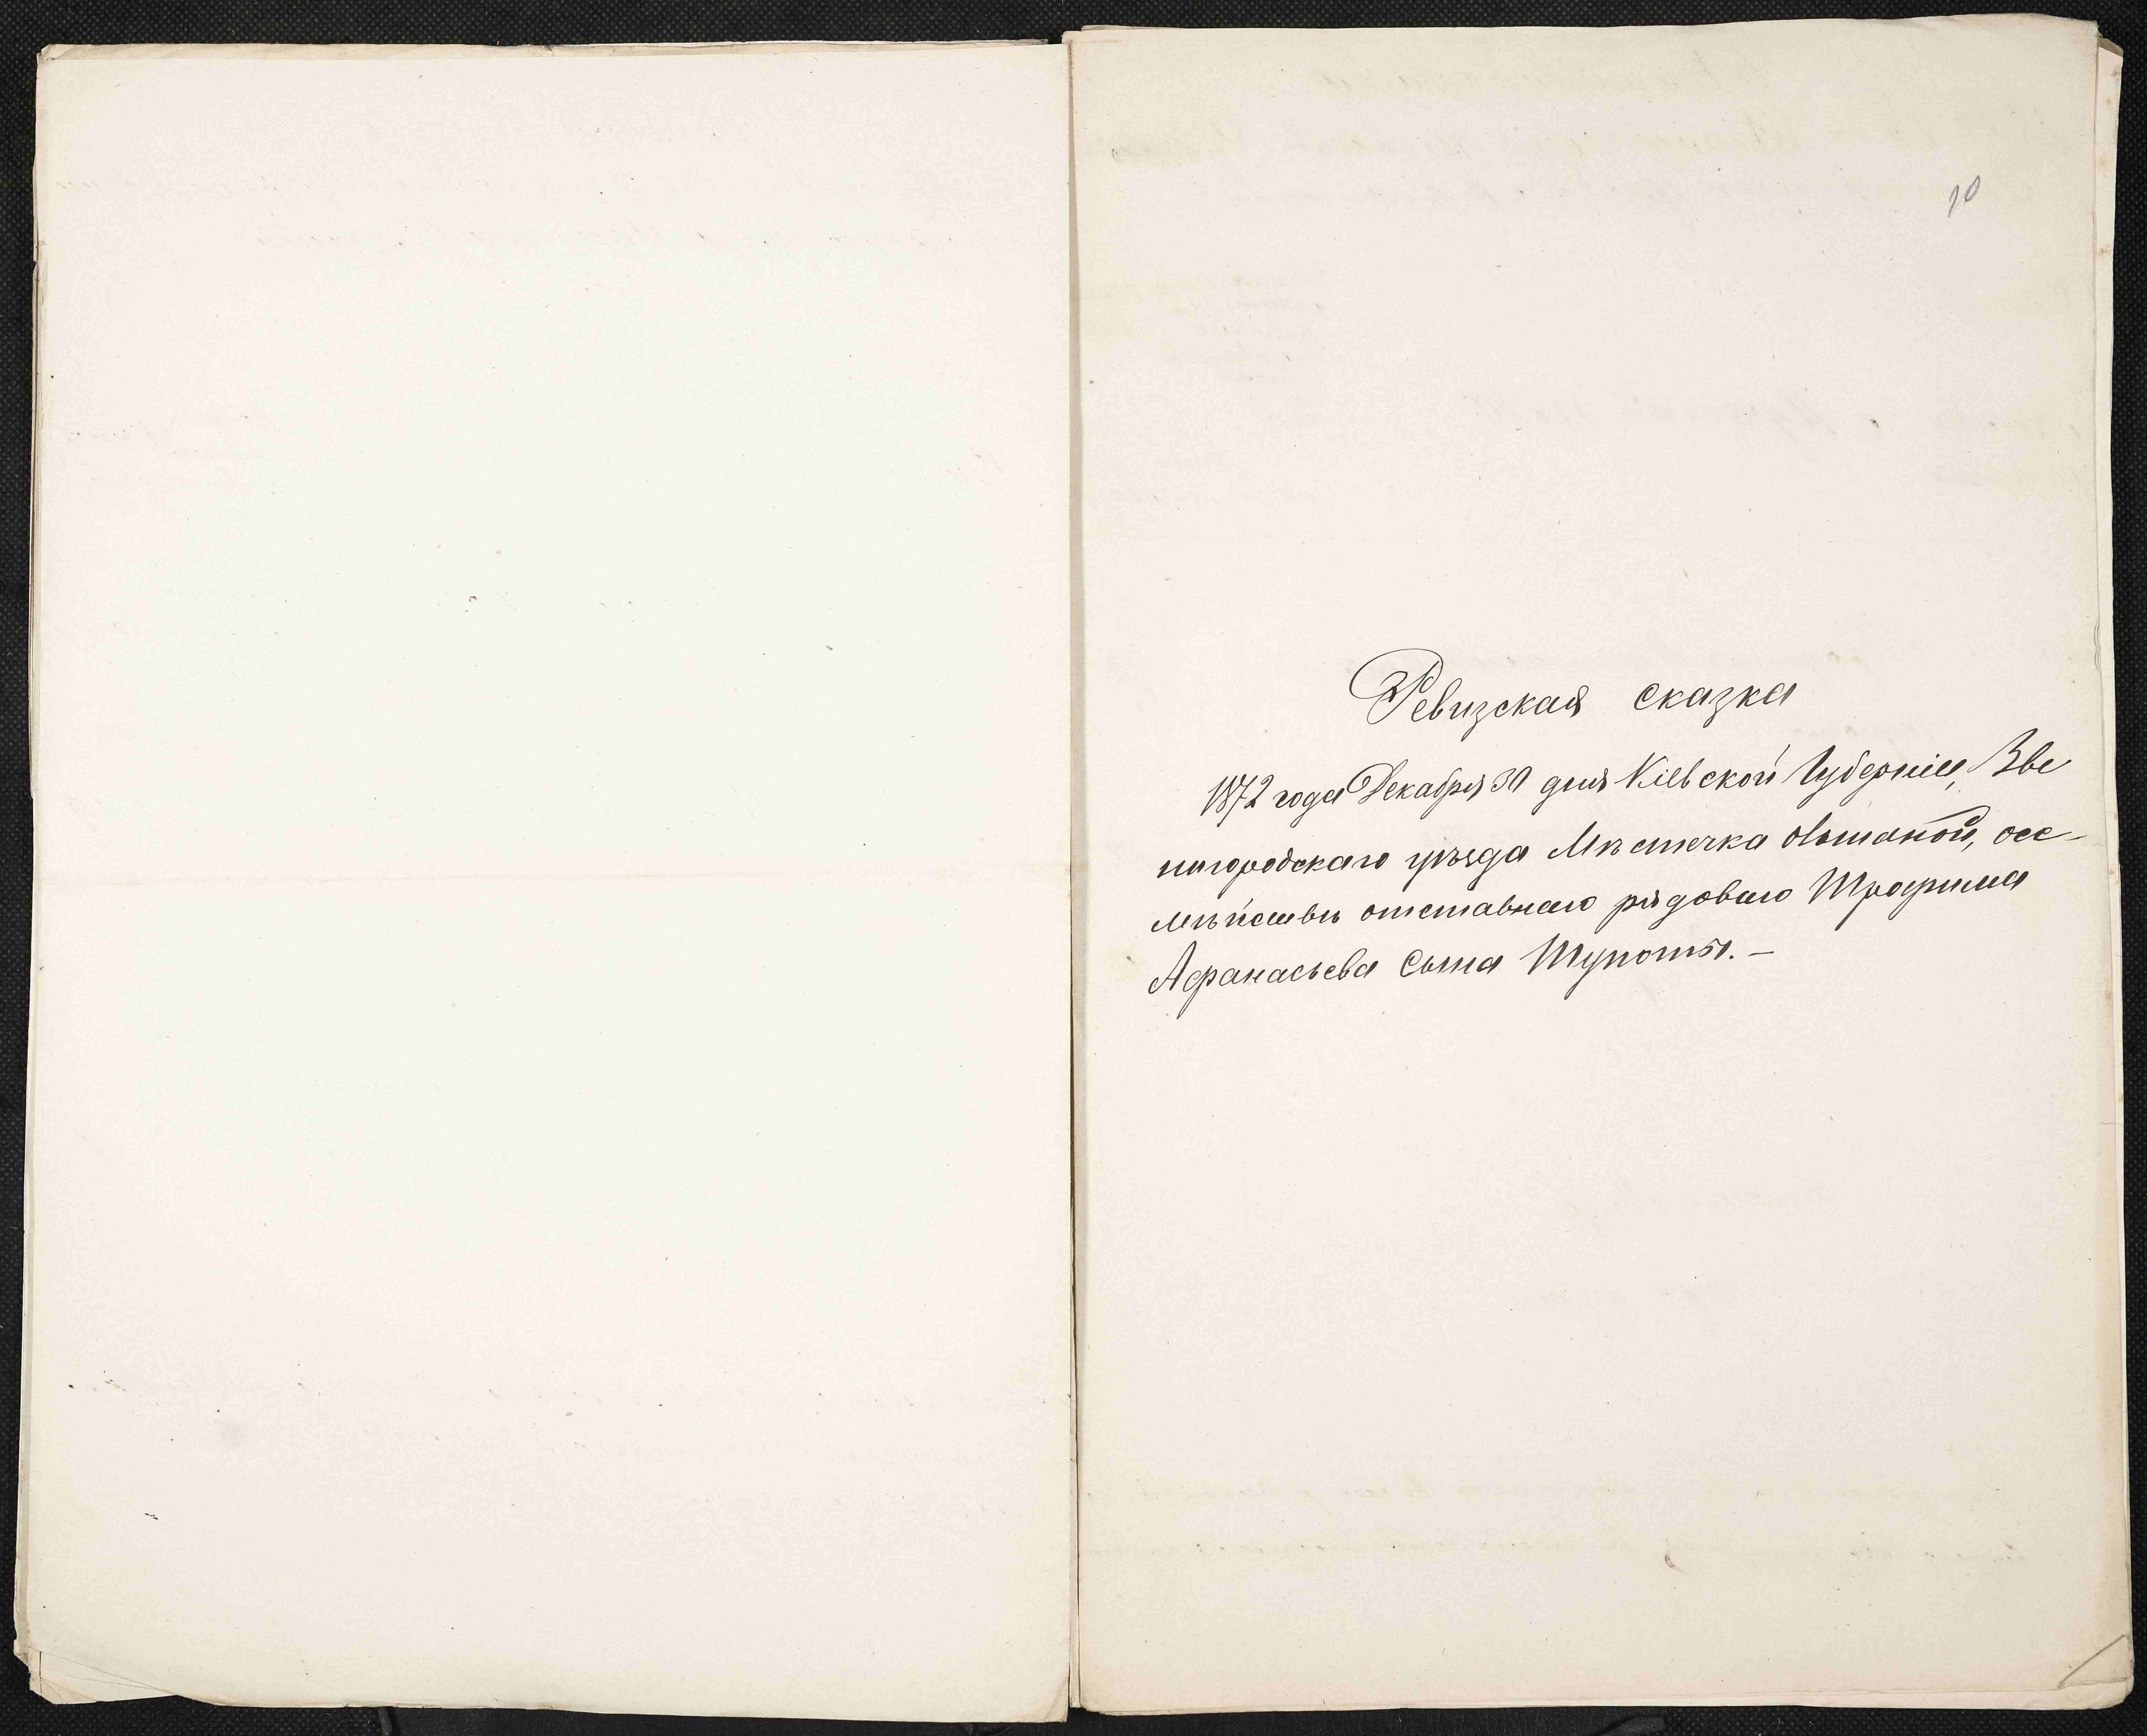 10
Ревизская сказка
1872 года Декабря 30 дня Кіевской Губерніи, Зве
нигородскаго уѣзда Мѣстечка Ольшаной, осе-
мѣйствѣ отставнаго рядоваго Трофима
Афанасьева Сына Тупоты. –